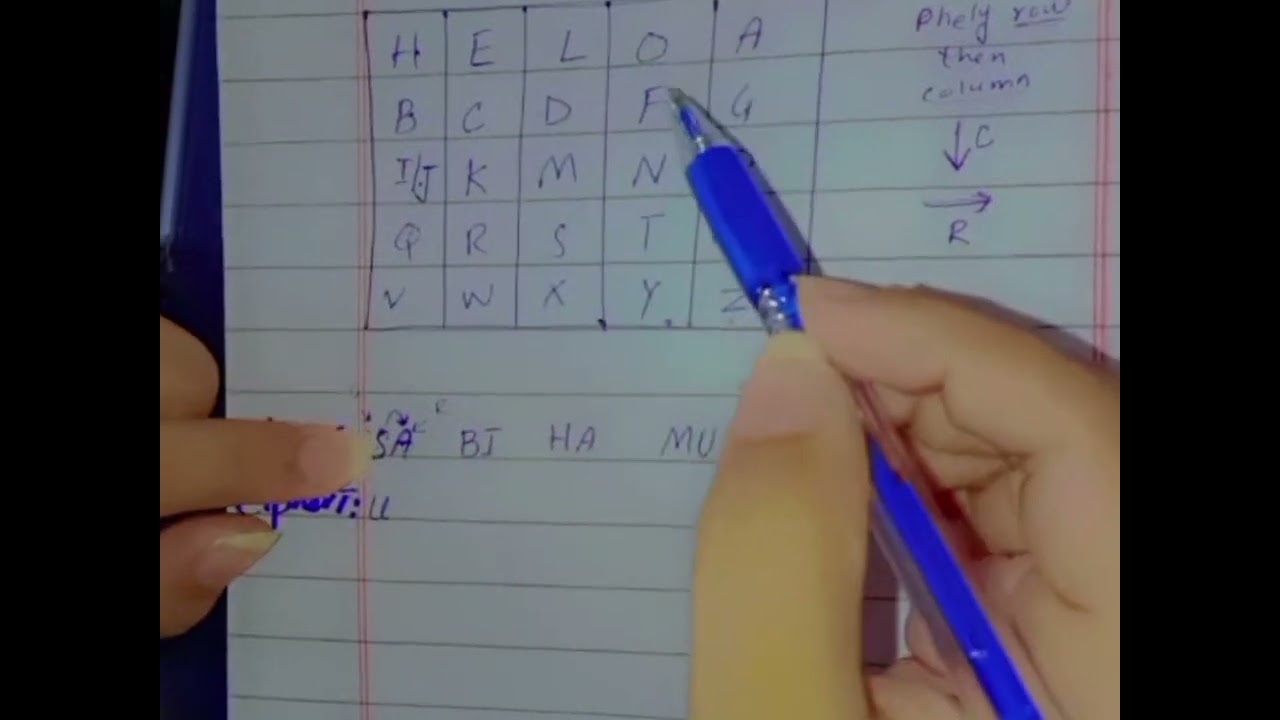 H E L O A
B C D F G
I/J K M N
Q R S T
V W X Y Z
Phely row
then
column
C
R
SA BI HA MU
CipherT: U